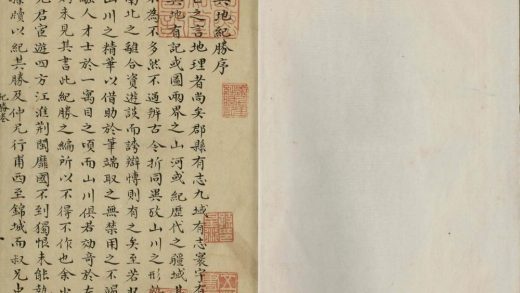 輿地紀勝序
世之言地理者尚矣郡縣有志九域有志寰宇有
輿地有記或圖兩界之山河或紀歷代之疆域其
不為不多然不過辨古今析同異攷山川之形勢
南北之離合資遊談而誇辯博則有之矣至若收
山川之精華以借助於筆端取之無禁用之不竭
騷人才士於一寓目之頃而山川俱若效奇於左
則未見其書此紀勝之編所以不得不作也余少
先君宦遊四方江淮荊閩靡國不到獨恨未能執
簡牘以紀其勝及仲兄行甫西至錦城而叔兄